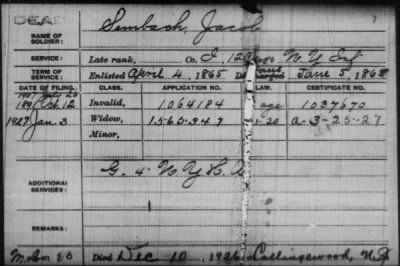 DEAD
NAME OF SOLDIER: Sembach, Jacob
SERVICE: Late rank, Co. I, 129 Reg't N.Y. Inf
TERM OF SERVICE: Enlisted April 4, 1865 Discharged June 5, 1865
DATE OF FILING. CLASS. APPLICATION NO. LAW. CERTIFICATE NO.
1907 July 26
189 Oct. 12 Invalid, 1064184 age 1037670
1927 Jan. 3 Widow, 1565949 -20 a-3-25-27
Minor,
ADDITIONAL SERVICES: G. 4 N Y H. A
REMARKS:
Died Dec 10, 1926 Collingswood, N.J.